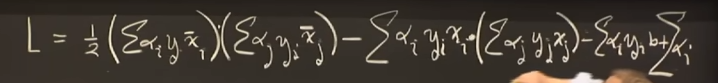 L = ½(∑αᵢyᵢx̄ᵢ)(∑αⱼyⱼx̄ⱼ) – ∑αᵢyᵢxᵢ·(∑αⱼyⱼxⱼ) – ∑αᵢyᵢb + ∑αᵢ